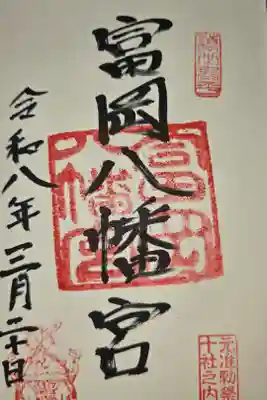 元准勅祭
十社之内
富岡八幡宮
富岡
八幡宮
令和八年三月二十日